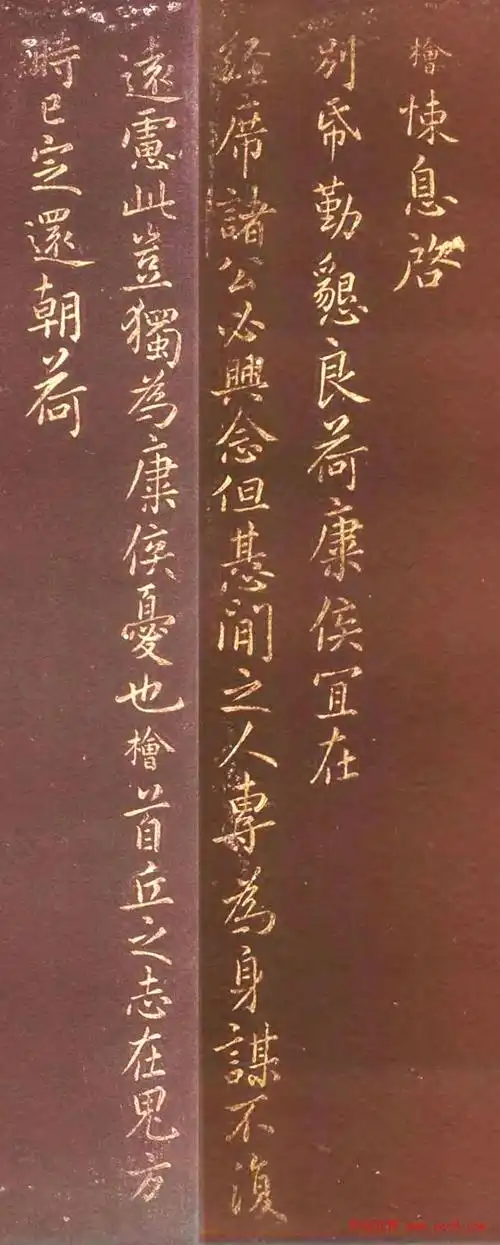 檜悚息啓
別帋勤懇良荷康侯冝在
經席諸公必興念但惎間之人專為身謀不復
遠慮此豈獨為康侯憂也檜首丘之志在鬼方
時已定還朝荷